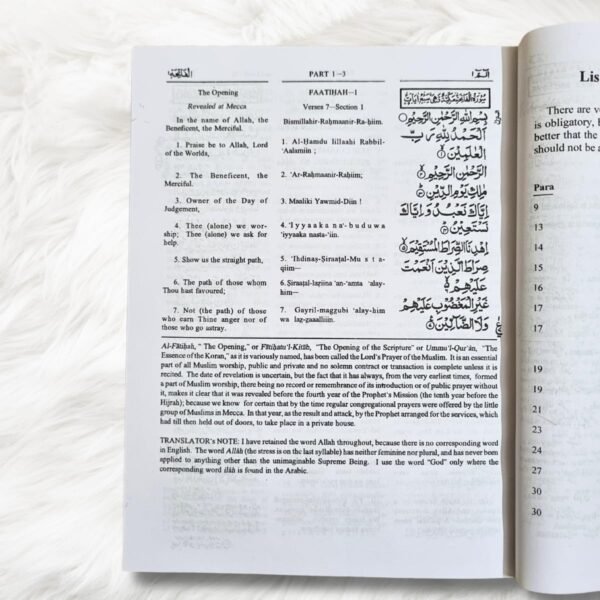 الفاتحة ١
PART 1-3
الٓمٓ ١
The Opening
Revealed at Mecca
In the name of Allah, the
Beneficent, the Merciful.
1. Praise be to Allah, Lord
of the Worlds,
2. The Beneficent, the
Merciful.
3. Owner of the Day of
Judgement,
4. Thee (alone) we wor-
ship; Thee (alone) we ask for
help.
5. Show us the straight path,
6. The path of those whom
Thou hast favoured;
7. Not (the path) of those
who earn Thine anger nor of
those who go astray.
FAATIḤAH—1
Verses 7—Section 1
Bismillahir-Raḥmaanir-Ra-ḥiim.
1. Al-Ḥamdu lillaahi Rabbil-
'Aalamiin ;
2. 'Ar-Raḥmaanir-Raḥiim;
3. Maaliki Yawmid-Diin !
4. 'Iyyaaka na'-buduwa
'iyyaaka nasta-'iin.
5. 'Ihdinaṣ-Ṣiraaṭal-Mu s t a-
qiim—
6. Ṣiraaṭal-laẓiina 'an-'amta 'alay-
him—
7. Gayril-maggubi 'alay-him
wa laẓ-ẓaaalliin.
بِسْمِ اللّٰهِ الرَّحْمٰنِ الرَّحِيْمِ
اَلْحَمْدُ لِلّٰهِ رَبِّ
الْعٰلَمِيْنَ ۙ
الرَّحْمٰنِ الرَّحِيْمِ ۙ
مٰلِكِ يَوْمِ الدِّيْنِ ۙ
اِيَّاكَ نَعْبُدُ وَاِيَّاكَ
نَسْتَعِيْنُ ۙ
اِهْدِنَا الصِّرَاطَ الْمُسْتَقِيْمَ ۙ
صِرَاطَ الَّذِيْنَ اَنْعَمْتَ
عَلَيْهِمْ
غَيْرِ الْمَغْضُوْبِ عَلَيْهِمْ
وَلَا الضَّآلِّيْنَ
Al-Fātiḥah, " The Opening," or Fātiḥatu'l-Kitāb, "The Opening of the Scripture" or Ummu'l-Qur'ān, "The
Essence of the Koran," as it is variously named, has been called the Lord's Prayer of the Muslim. It is an essential
part of all Muslim worship, public and private and no solemn contract or transaction is complete unless it is
recited. The date of revelation is uncertain, but the fact that it has always, from the very earliest times, formed
a part of Muslim worship, there being no record or remembrance of its introduction or of public prayer without
it, makes it clear that it was revealed before the fourth year of the Prophet's Mission (the tenth year before the
Hijrah); because we know for certain that by the time regular congregational prayers were offered by the little
group of Muslims in Mecca. In that year, as the result and attack, by the Prophet arranged for the services, which
had till then held out of doors, to take place in a private house.
TRANSLATOR'S NOTE: I have retained the word Allah throughout, because there is no corresponding word
in English. The word Allāh (the stress on the last syllable) has neither feminine nor plural, and has never been
applied to anything other than the unimaginable Supreme Being. I use the word "God" only where the
corresponding word ilāh is found in the Arabic.
Lis
There are ve
is obligatory, b
better that the
should not be a
Para
9
13
14
15
16
17
17
19
19
21
23
24
27
30
30